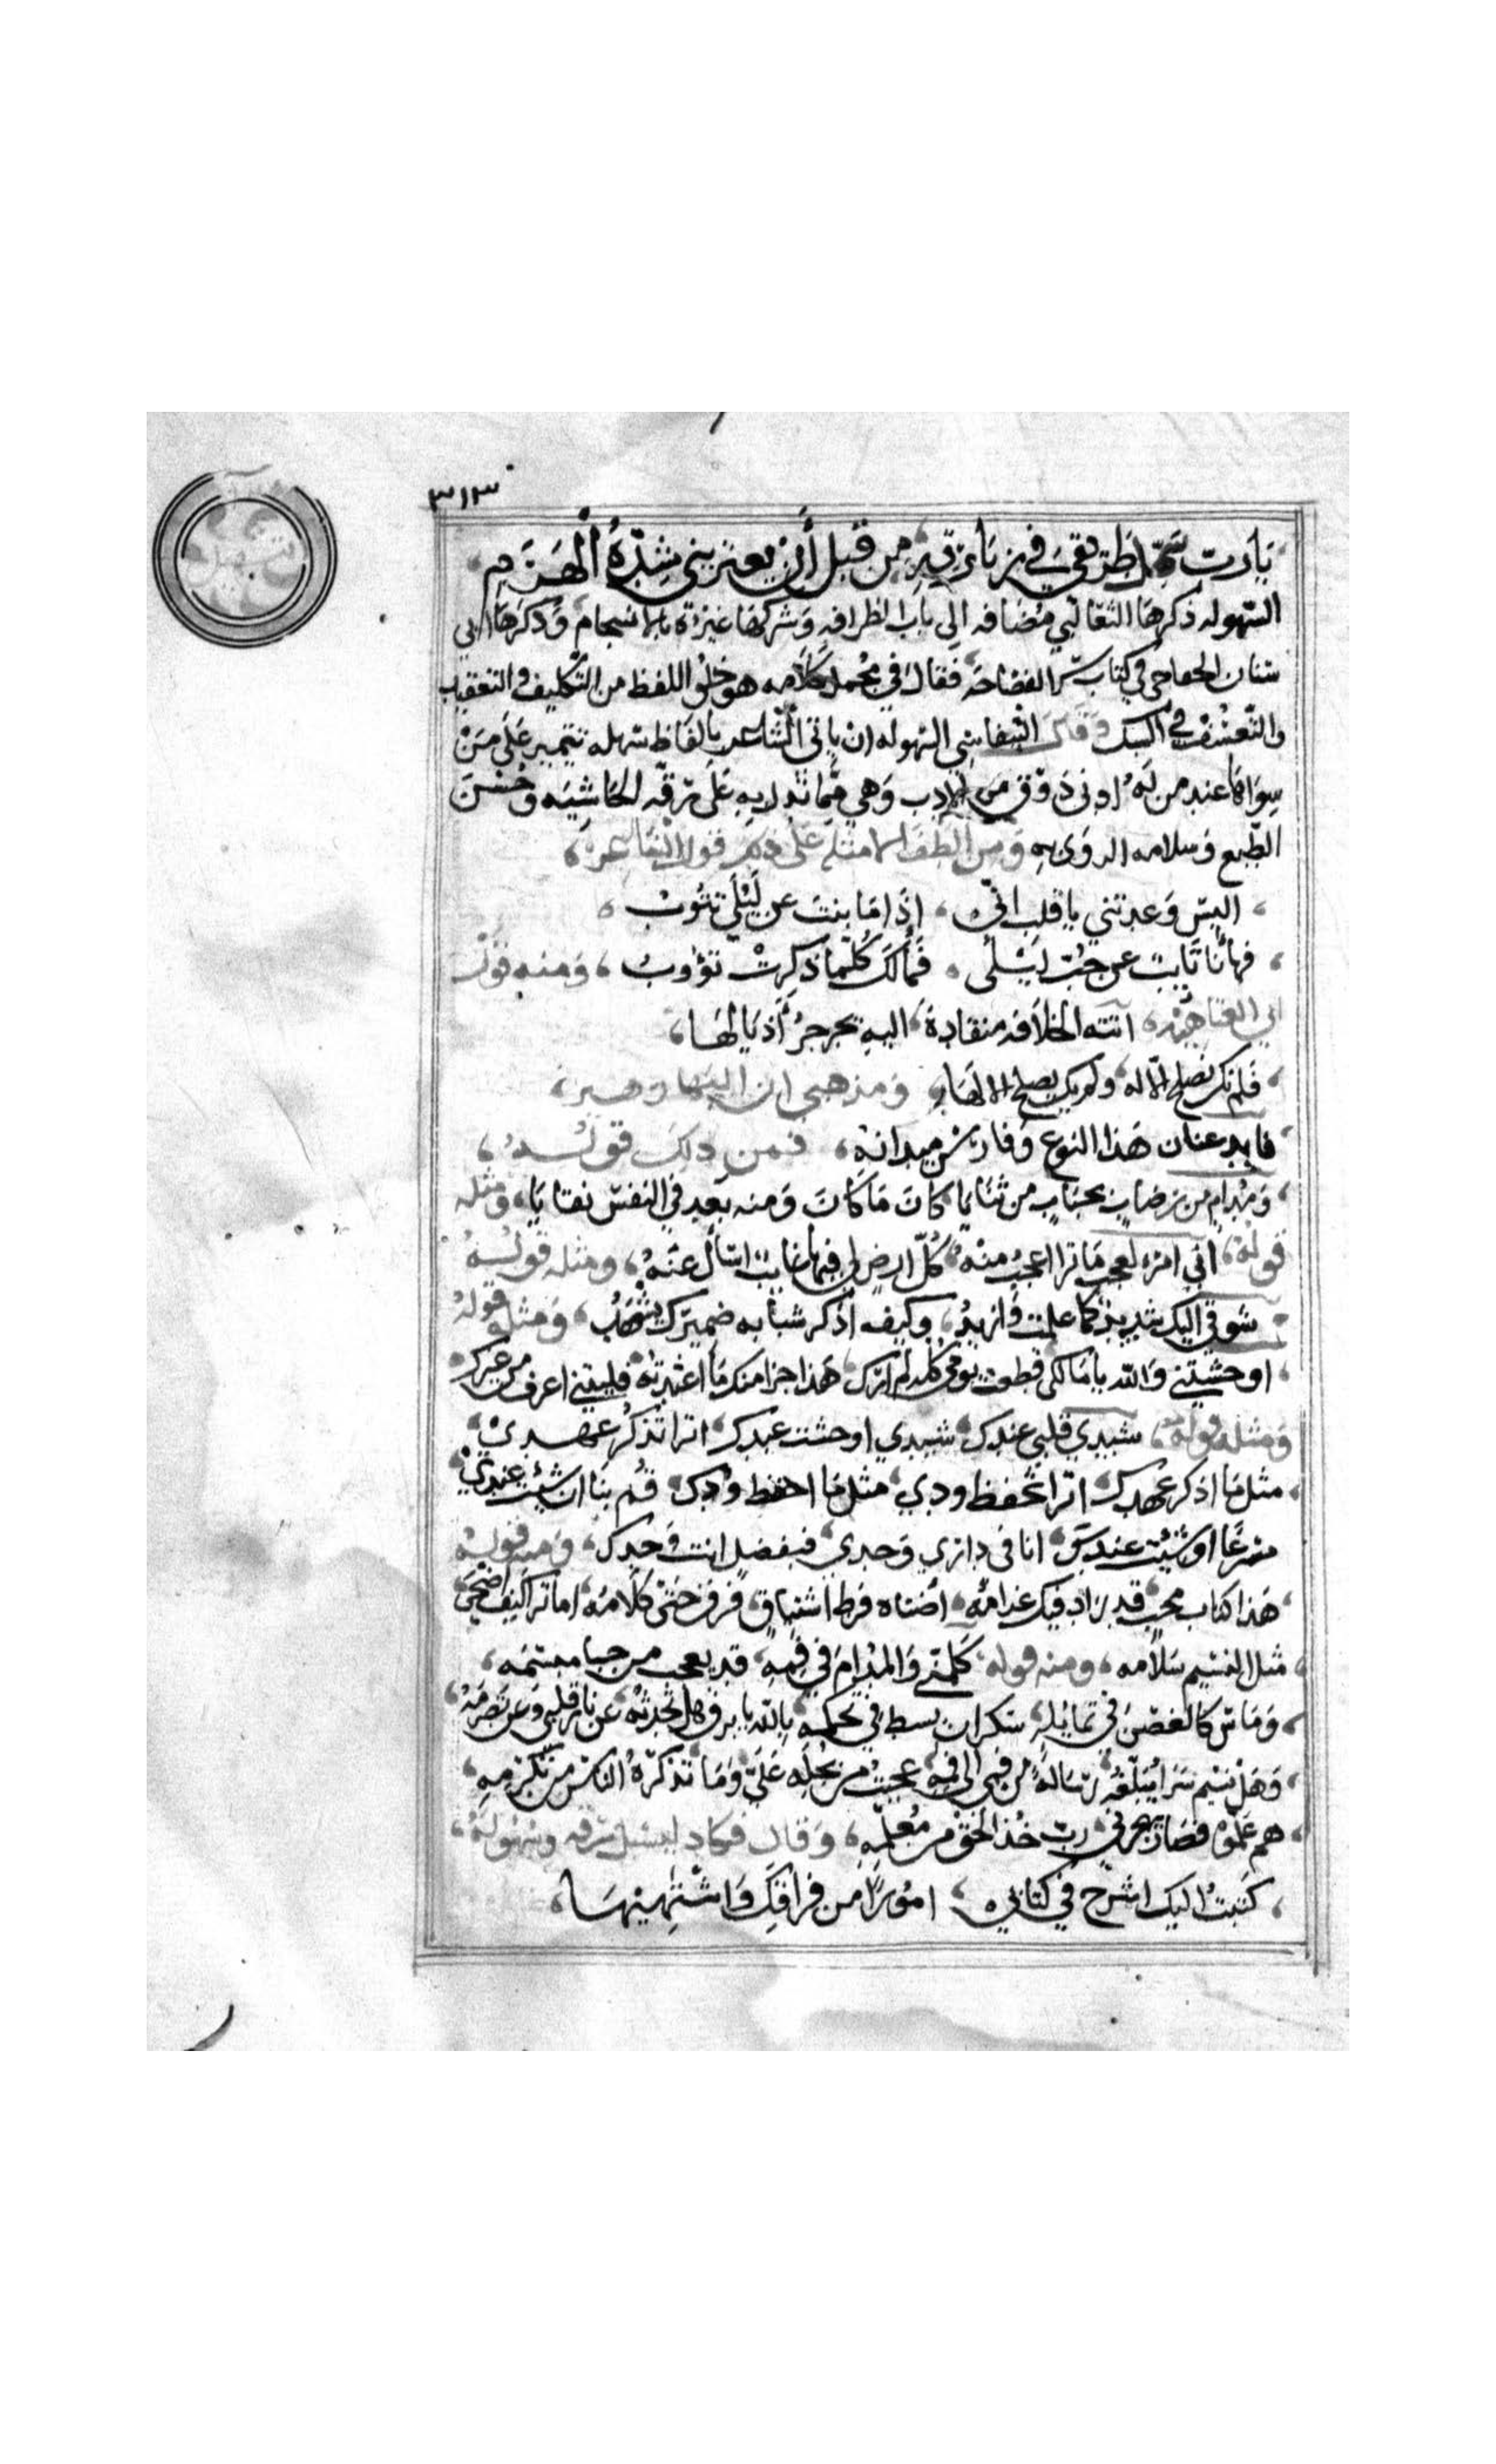 ٣١٣
تسهيل
يا رب سهل طريقي في زيارته من قبل أن يعتريني شدة الهرم
السهوله ذكرها الثعالبي مضافه الى باب الظرافه وشركها غيره بالانسجام وذكرها ابن
سنان الخفاجي في كتاب سر الفصاحه فقال في مجمل كلامه هو خلو اللفظ من التكليف والتعقيد
والتعسف في السبك وقال التيفاشي السهوله ان ياتي الشاعر بالفاظ سهله تتميز على من
سواها عند من له ادنى ذوق من الادب وهي مما تدل به على رقه الحاشيه وحسن
الطبع وسلامه الرويه ومن الطف الامثله على ذلك قول الشاعر
اليس وعدتني يا قلب اني اذا ما بنت عن ليلى تتوب
فها أنا تايب عن حب ليلى فمالك كلما ذكرت تذوب ومنه قول
ابي العتاهيه اتته الخلافه منقادة اليه تجرجر أذيالها
فلم تك تصلح الا له ولم يك يصلح الا لها ومذهبي ان البها زهير
قايد عنان هذا النوع وفارس ميدانه فمن ذلك قوله
ومدام من رضاب بحباب من ثنايا كان ما كان ومنه بعد في النفس بقايا ومثله
قوله اني امره لعجب ما ترا اعجب منه كل ارض لي فيها غايب اسأل عنه ومثله قوله
شوقي اليك شديد كما علمت وازيد وكيف اذكر شيأ به ضميرك يشهد ومثله قوله
اوحشتني والله يا مالكي قطعت يومي كله لم ارك هذا جزا منك ما اعتدته فليتني اعرف من غيرك
ومثله قوله سيدي قلبي عندك سيدي اوحشت عبدك اترا تذكر عهدي
مثل ما اذكر عهدك اترا تحفظ ودي مثل ما احفظ ودك قم بنا ان شيت عندي
مسرعا او شيت عندك انا في داري وحدي فبفضل انت وحدك ومنه قوله
هذا كتاب محب قد زاد فيك غرامه أضناه فرط اشتياق فرق حتى كلامه اما ترا كيف اضحى
مثل النسيم سلامه ومنه قوله كلمني والمدام في فمه قد يعجب من حبا مبسمه
وماس كالغصن في تمايله سكران يسط في تحكمه بالله يا برق هل تحدثه عن نار قلبي وعن تضرمه
وهل نسيم سرا يبلغه رسالة من فمي الى فمه عجبت من بخله علي وما تذكره الناس من تكرمه
هم علموه فصار يهجرني رب خذ الحق من معلمه وقال فكاد ليسيل رقه وسهوله
كتبت اليك اشرح في كتابي امورا من فراقك واشتهيها